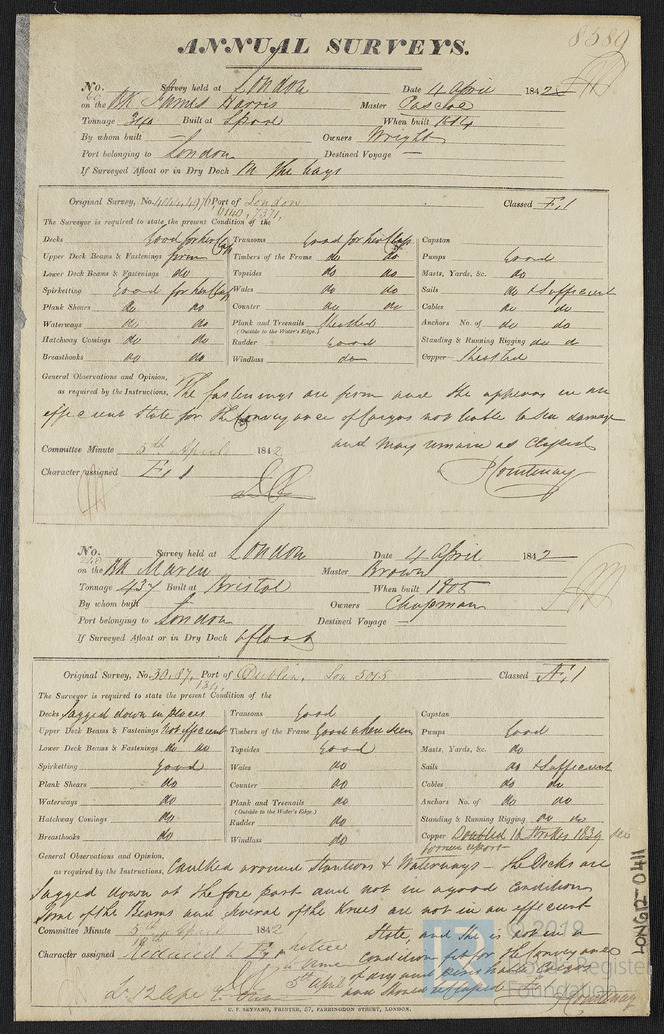 ANNUAL SURVEYS.
8589
No. Survey held at London Date 4 April 1842
on the Bk James Harris Master Pascoe
Tonnage 340 Built at When built
By whom built — Owners Wright
Port belonging to London Destined Voyage —
If Surveyed Afloat or in Dry Dock In the ways
Original Survey, No. Port of London Classed E, 1
The Surveyor is required to state the present Condition of the
Decks Good for her Class Transoms Good for her Class Capstan
Upper Deck Beams & Fastenings firm Timbers of the Frame do do Pumps Good
Lower Deck Beams & Fastenings do Topsides do do Masts, Yards, &c. do
Spirketting Good for her Class Wales do do Sails do & Sufficient
Plank Shears do do Counter do do Cables do do
Waterways do do Plank and Treenails Sheathed Anchors No. of do do
(Outside to the Water's Edge.)
Hatchway Comings do do Rudder Good Standing & Running Rigging do do
Breasthooks do do Windlass do Copper Sheathed
General Observations and Opinion,
as required by the Instructions, The fastenings are firm and she appears in an
efficient state for the conveyance of Cargos not liable to Sea damage
and may remain as Classed
Committee Minute 5th April 1842
Character assigned E, 1
Courtenay
No. Survey held at London Date 4 April 1842
on the Bk Maria Master Brown
Tonnage 437 Built at Bristol When built 1805
By whom built Owners Chapman
Port belonging to London Destined Voyage —
If Surveyed Afloat or in Dry Dock Afloat
Original Survey, No. 30,37, Port of Dublin, Lon 5045 Classed Æ, 1
134,
The Surveyor is required to state the present Condition of the
Decks Sagged down in places Transoms Good Capstan
Upper Deck Beams & Fastenings Not efficient Timbers of the Frame Good when seen Pumps Good
Lower Deck Beams & Fastenings do do Topsides Good Masts, Yards, &c. do
Spirketting Good Wales do Sails do & Sufficient
Plank Shears do Counter do Cables do do
Waterways do Plank and Treenails do Anchors No. of do do
(Outside to the Water's Edge.)
Hatchway Comings do Rudder do Standing & Running Rigging do do
Breasthooks do Windlass do Copper Doubled 16 Strakes 1839
former report
General Observations and Opinion,
as required by the Instructions, Caulked around Stantions & Waterways - the Decks are
Sagged down at the fore part and not in a good Condition
Some of the Beams and several of the Knees are not in an efficient
State, and she is not in a
Condition fit for the Conveyance
of dry and perishable Cargos
and should be Classed E, 1
Committee Minute 5th April 1842
Character assigned Reduced to E, 1
notice
5th April
Courtenay
C. F. SEYFANG, PRINTER, 57, FARRINGDON STREET, LONDON.
LON612-0411
© 2019
Lloyd's Register
Foundation